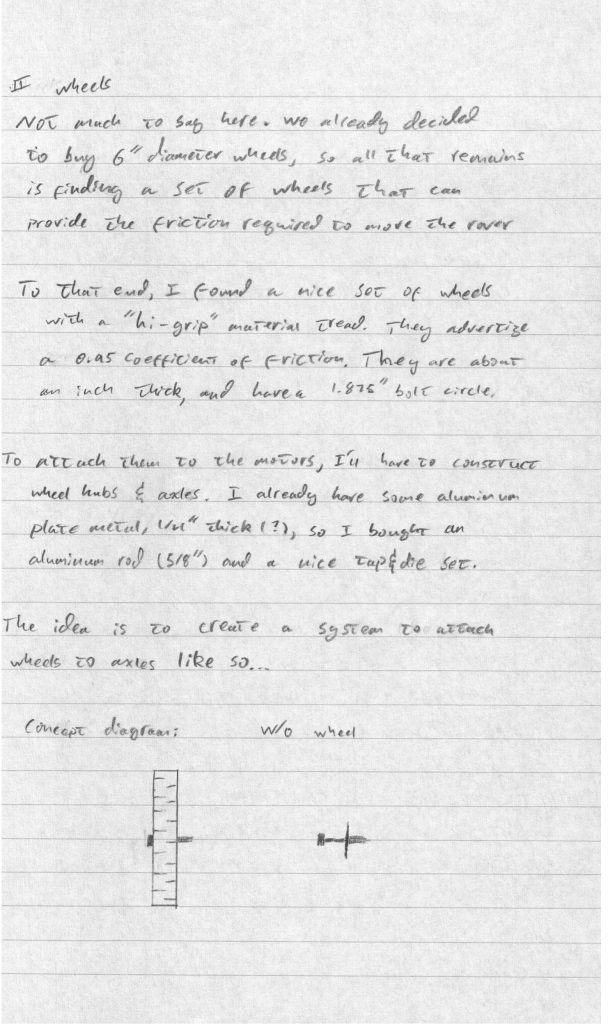 II wheels
Not much to say here. We already decided
to buy 6" diameter wheels, so all that remains
is finding a set of wheels that can
provide the friction required to move the rover
To that end, I found a nice set of wheels
with a "hi-grip" material tread. They advertize
a 0.95 coefficient of friction. They are about
an inch thick, and have a 1.875" bolt circle.
To attach them to the motors, I'll have to construct
wheel hubs & axles. I already have some aluminum
plate metal, thick (?), so I bought an
aluminum rod (5/8") and a nice tap&die set.
The idea is to create a system to attach
wheels to axles like so...
Concept diagram: W/o wheel